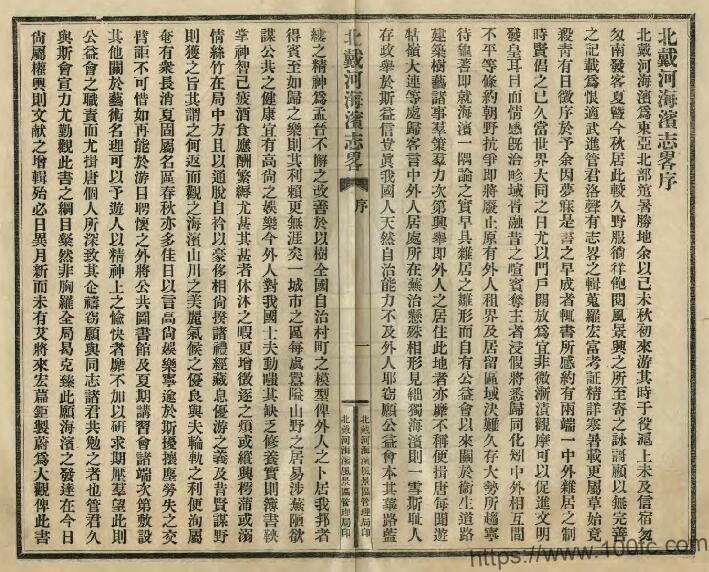 北戴河海濱志畧序
北戴河海濱爲東亞北部避暑勝地余以己未秋初來游其時于役滬上未及信宿匆
匆南發客夏曁今秋居此較久野服徜徉飽閱風景興之所至寄之詠謌顧以無完善
之記載爲恨適武進管君洛聲有志畧之輯蒐羅宏富考証精詳寒暑載更屬草始竟
殺靑有日徵序於予余因夢寐是書之早成者輒書所感約有兩端一中外雜居之制
時賢倡之已久當世界大同之日尤以門戶開放爲宜非微漸漬觀摩可以促進文明
發皇耳目而情感旣洽畛域胥融昔之喧賓奪主者浸假將悉歸同化矧中外相互間
不平等條約朝野抗爭卽將廢止原有外人租界及居留區域決難久存大勢所趨寧
待龜蓍卽就海濱一隅論之實早具雜居之雛形而自有公益會以來關於衞生道路
建築樹藝諸事羣策羣力次第興舉卽外人之居住此地者亦靡不稱便揩唐每聞遊
牯嶺大連等處歸客言中外人居處所在蕪治懸殊相形見絀獨海濱則一雪斯耻人
存政舉於斯益信豈眞我國人天然自治能力不及外人耶竊願公益會本其篳路藍
縷之精神爲孟晉不懈之改善於以樹全國自治村町之模型俾外人之卜居我邦者
得賓至如歸之樂則其利賴更無涯矣一城市之區每虞囂隘山野之居易涉蕪陋欲
謀公共之健康宜有高尙之娛樂今外人對我國士夫動嗤其缺乏修養實則簿書鞅
掌神智已疲酒食應酬繁縟尤甚其甚者休沐之暇更增徵逐之煩或縱興樗蒲或溺
情絲竹在局中方且以通脫自矜以豪侈相尙投諸禮經藏息優游之義及昔賢謀野
則獲之旨其謂之何返而觀之海濱山川之美麗氣候之優良與夫輪軌之利便洵屬
奄有衆長消夏固屬名區春秋亦多佳日以言高尙娛樂寧逾於斯擾攘塵勞失之交
臂詎不可惜如再能於游目騁懷之外將公共圖書館及夏期講習會諸端次第敷設
其他關於藝術名理可以予遊人以精神上之愉快者靡不加以硏求期壓羣望此則
公益會之職責而尤揩唐個人所深致其企禱竊願與同志諸君共勉之者也管君久
與斯會宣力尤勤觀此書之綱目粲然非胸羅全局曷克臻此願海濱之發達在今日
尙屬權輿則文献之增輯殆必日異月新而未有艾將來宏篇鉅製蔚爲大觀俾此書
北戴河海濱志畧
序
一
北戴河海濱風景區管理局印
北戴河海濱風景區管理局印
https://www.100fc.com